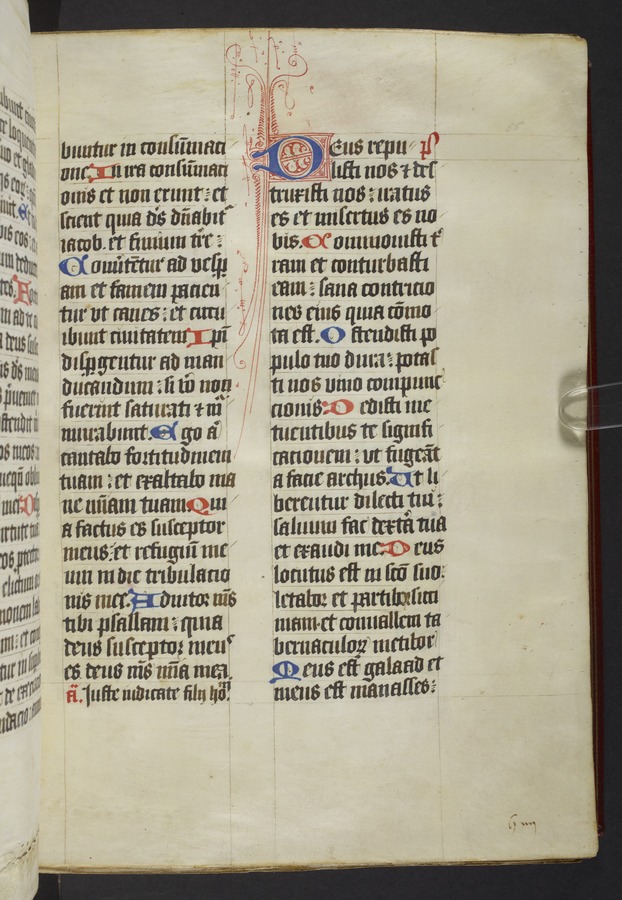 buntur in consūmati
one. In ira consūmati
onis et non erunt: et
scient quia dn̄s dn̄abit᷑
iacob. et finium tr̄e:
Conūtētur ad vesp̄
am et famem pacien
tur vt canes: et circu
ibunt ciuitatem. Ip̄i
disp̄gentur ad man
ducandum: si v̄o non
fuerint saturati ⁊ m̄
murabunt. Ego āt
cantabo fortitudinem
tuam: et exaltabo ma
ne mīam tuam. Qui
a factus es susceptor
meus: et refugiū me
um in die tribulatio
nis mee. Adiutor m̄s
tibi psallam: quia
deus susceptor meus
es. deus m̄s mīa mea.
ā. Iuste iudicate filij hōı̄.
Deus repu p̄s
listi nos ⁊ des
truxisti nos: iratus
es et misertus es no
bis. Commouisti t̄
ram et conturbasti
eam: sana contricio
nes eius quia cōmo
ta est. Ostendisti po
pulo tuo dura: potas
ti nos vino compunc
cionis. Dedisti me
tuentibus te signifi
cationem: vt fugeāt
a facie archus. Vt li
berentur dilecti tui:
saluum fac dextā tua
et exaudi me. Deus
locutus est in sc̄o suo:
letabor et partibor sici
mam. et conuallem ta
bernaculoꝝ metibor
Meus est galaad et
meus est manasses:
g iiij